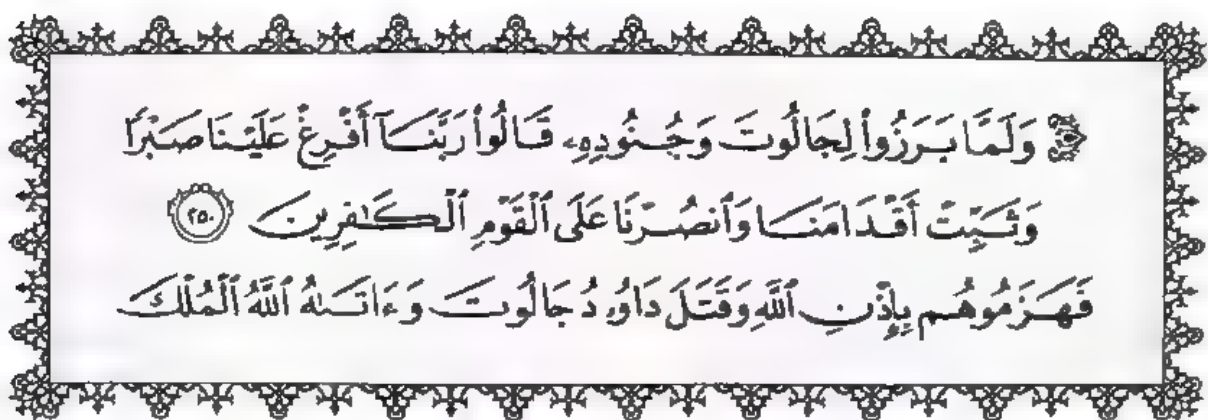 وَلَمَّا بَرَزُوا۟ لِجَالُوتَ وَجُنُودِهِۦ قَالُوا۟ رَبَّنَآ أَفْرِغْ عَلَيْنَا صَبْرًا
وَثَبِّتْ أَقْدَامَنَا وَٱنصُرْنَا عَلَى ٱلْقَوْمِ ٱلْكَٰفِرِينَ ٢٥٠
فَهَزَمُوهُم بِإِذْنِ ٱللَّهِ وَقَتَلَ دَاوُۥدُ جَالُوتَ وَءَاتَىٰهُ ٱللَّهُ ٱلْمُلْكَ